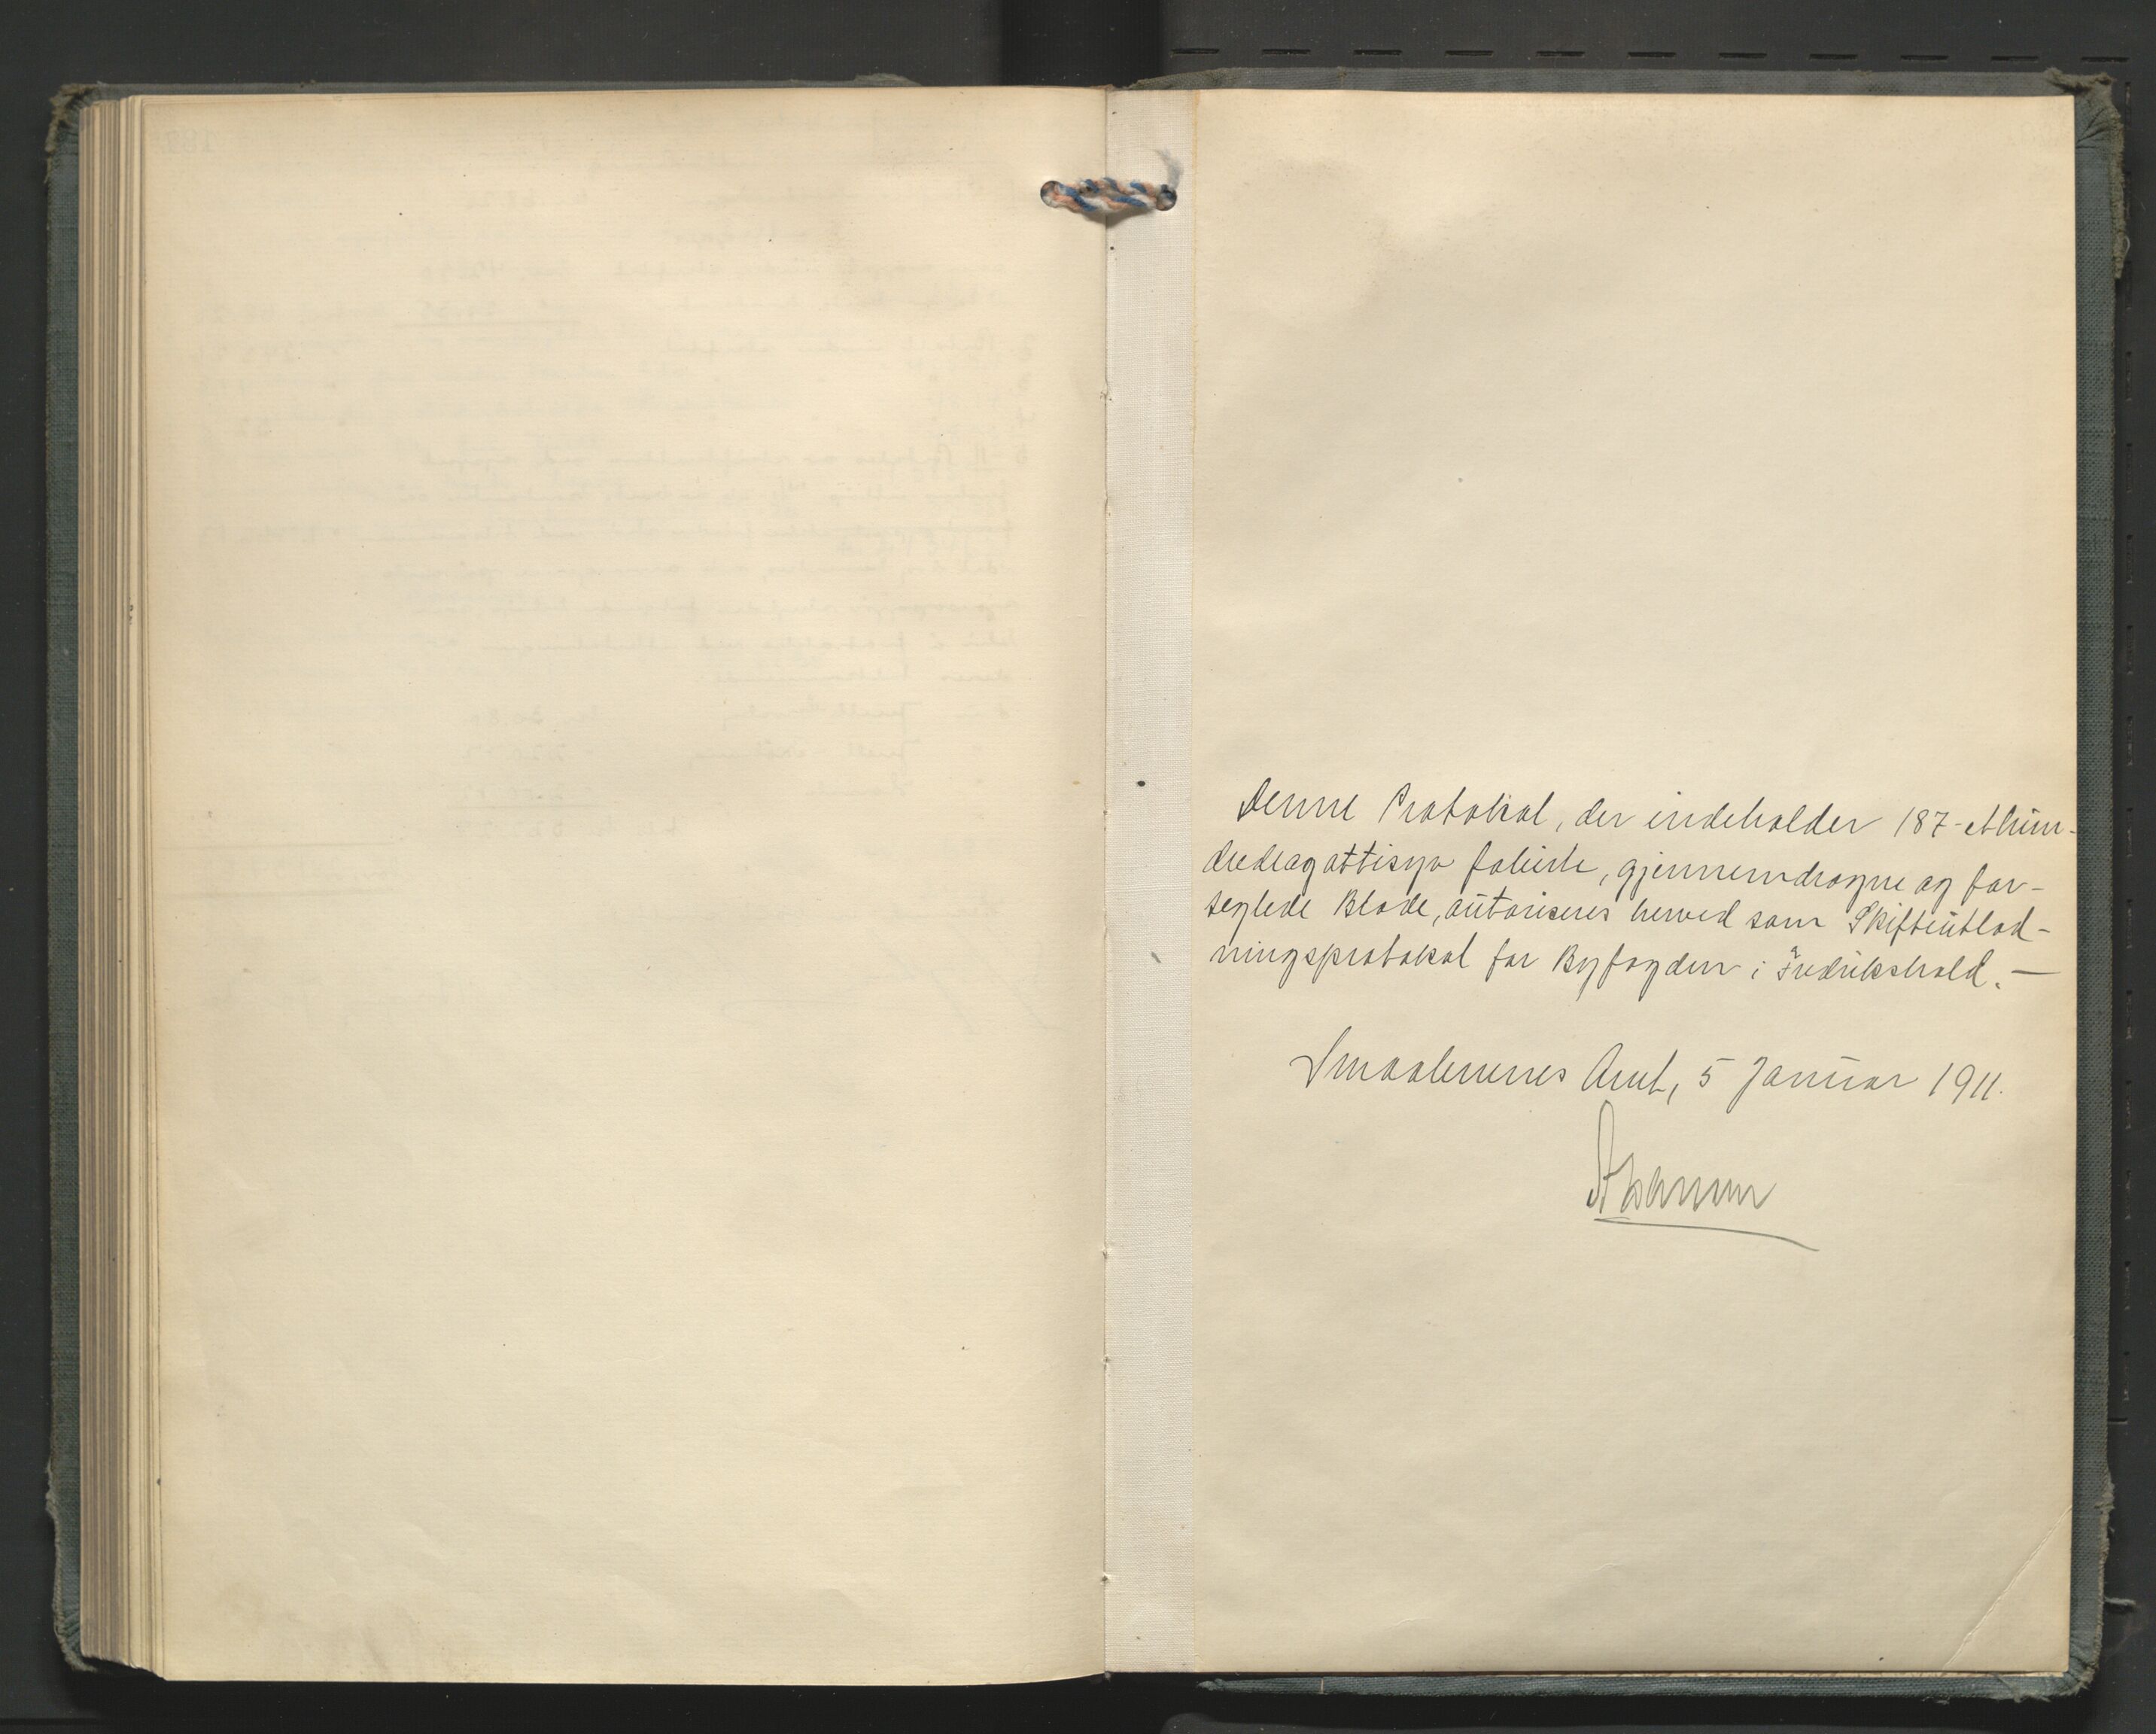 Denne Protokol, der indeholder 187-ethun-
dredeogottisyv foliirte, gjennemdragne og for-
seglede Blade, autoriseres herved som Skifteutlod-
ningsprotokol for Byfogden i Fredrikshald. —
Smaalenenes Amt, 5 Januar 1911.